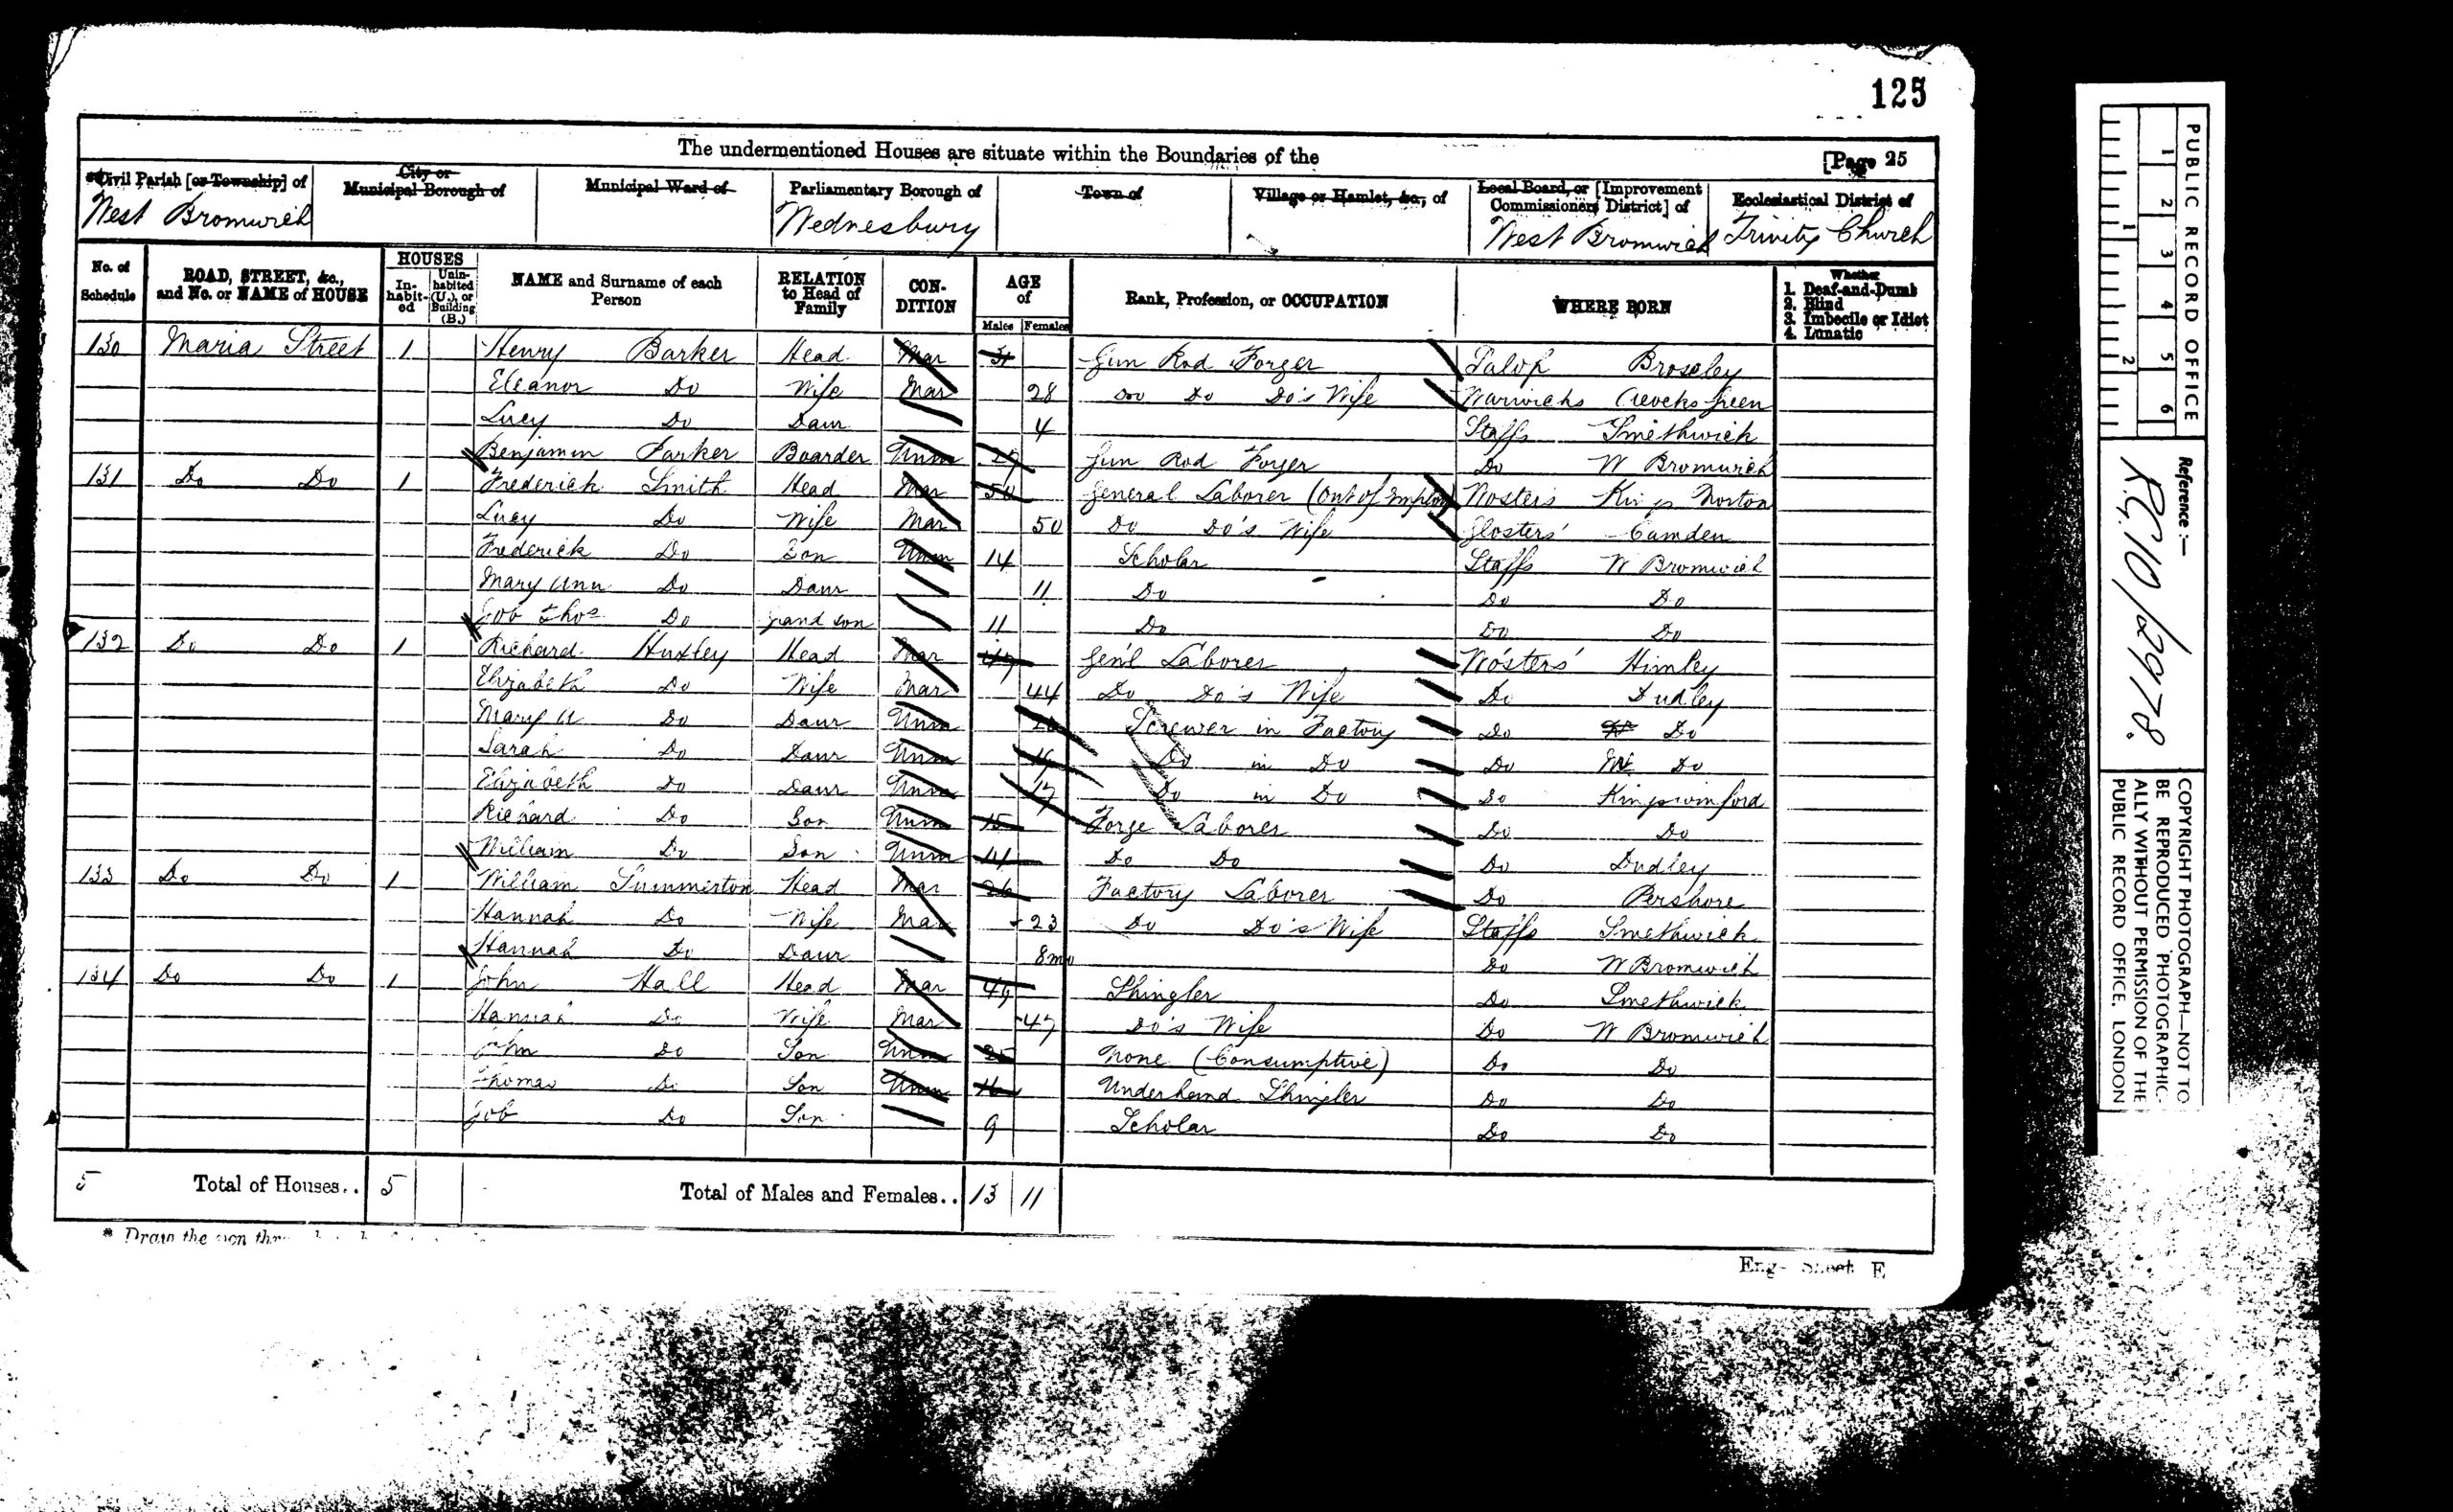 125
The undermentioned Houses are situate within the Boundaries of the [Page 25
*Civil Parish [or Township] of West Bromwich
City or Municipal Borough of
Municipal Ward of
Parliamentary Borough of Wednesbury
Town of
Village or Hamlet, &c., of
Local Board, or [Improvement Commissioners District] of West Bromwich
Ecclesiastical District of Trinity Church
No. of Schedule
ROAD, STREET, &c., and No. or NAME of HOUSE
HOUSES
Inhabited
Uninhabited (U.), or Building (B.)
NAME and Surname of each Person
RELATION to Head of Family
CONDITION
AGE of
Males Females
Rank, Profession, or OCCUPATION
WHERE BORN
Whether
1. Deaf-and-Dumb
2. Blind
3. Imbecile or Idiot
4. Lunatic
130 Maria Street 1 Henry Barker Head Mar 31 Gun Rod Forger Salop Broseley
Eleanor Do Wife Mar 28 Do Do Do's Wife Warwicks Green
Lucy Do Daur 4 Staffs Smethwick
Benjamin Parker Boarder Unm Gun Rod Forger Do W Bromwich
131 Do Do 1 Frederick Smith Head Mar 50 General Laborer (Out of Employ) Wosters Kings Norton
Lucy Do Wife Mar 50 Do Do's Wife Glosters' Camden
Frederick Do Son Unm 14 Scholar Staffs W Bromwich
Mary Ann Do Daur 11 Do Do Do
Job Thos Do grand son 11 Do Do Do
132 Do Do 1 Richard Huxley Head Mar 47 Gen'l Laborer Wosters' Himley
Elizabeth Do Wife Mar 44 Do Do's Wife Do Dudley
Mary A Do Daur Unm Screwer in Factory Do Do
Sarah Do Daur Unm 19 Do in Do Do Do
Elizabeth Do Daur Unm 17 Do in Do Do Kingswinford
Richard Do Son Unm 15 Forge Laborer Do Do
William Do Son Unm 14 Do Do Do Dudley
133 Do Do 1 William Summerton Head Mar 26 Factory Laborer Do Pershore
Hannah Do Wife Mar 23 Do Do's Wife Staffs Smethwick
Hannah Do Daur 8mo Do W Bromwich
134 Do Do 1 John Hall Head Mar 49 Shingler Do Smethwick
Hannah Do Wife Mar 47 Do's Wife Do W Bromwich
John Do Son Unm 25 None (Consumptive) Do Do
Thomas Do Son Unm 16 Underhand Shingler Do Do
Job Do Son 9 Scholar Do Do
5 Total of Houses.. 5 Total of Males and Females.. 13 11
* Draw the pen
Eng- Sheet E
PUBLIC RECORD OFFICE
1 2 3 4 5 6
1 2
Reference :—
R.G. 10/2978.
COPYRIGHT PHOTOGRAPH—NOT TO
BE REPRODUCED PHOTOGRAPHIC-
ALLY WITHOUT PERMISSION OF THE
PUBLIC RECORD OFFICE, LONDON